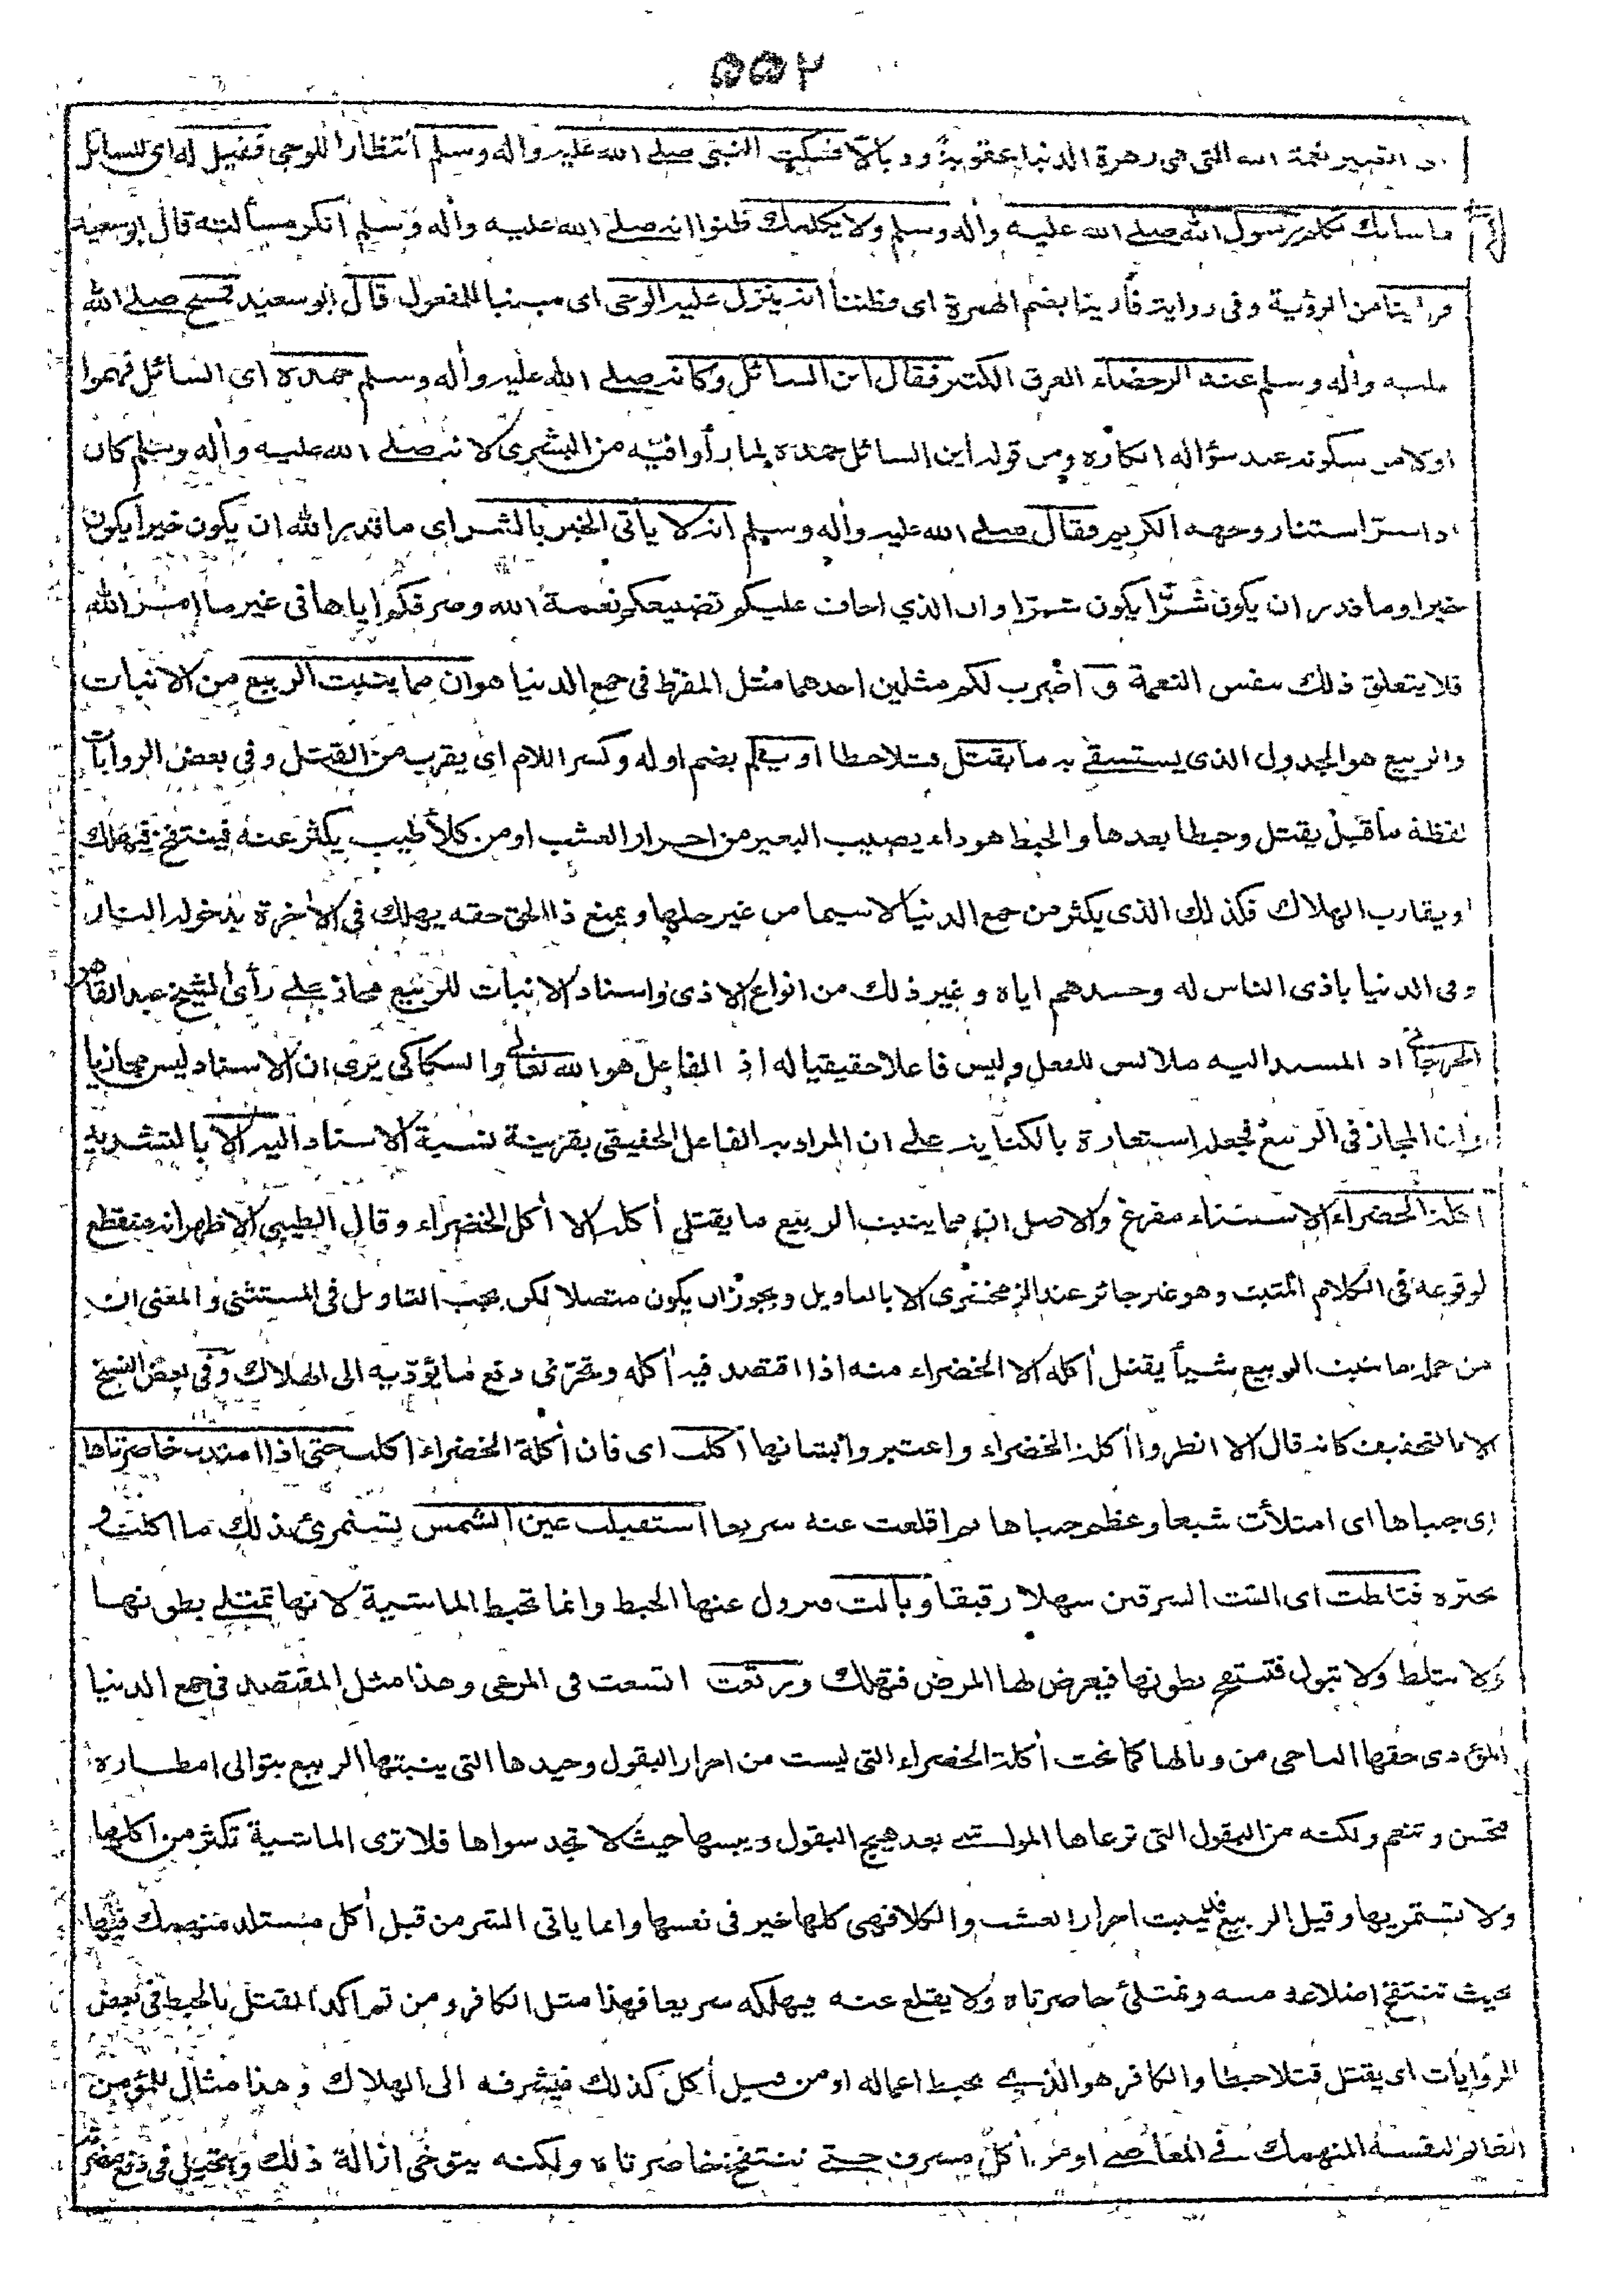 ٥٥٢
التعبير نعمة الله التى هى زهرة الدنيا عقوبة ووبالا فسكت النبى صلى الله عليه واله وسلم انتظارا للوحى فقيل له اى للسائل
ما شانك تكلم رسول الله صلى الله عليه واله وسلم ولا يكلمك ظنوا انه صلى الله عليه واله وسلم انكر مسألته قال ابو سعيد
فرأينا من الرؤية وفى رواية فأرينا بضم الهمزة اى فظننا انه ينزل عليه الوحى اى مبنيا للمفعول قال ابو سعيد فمسح صلى الله
عليه واله وسلم عنه الرحضاء العرق الكثير فقال اين السائل وكانه صلى الله عليه واله وسلم حمده اى السائل فهموا
اولا من سكوته عند سؤاله انكاره ومن قوله اين السائل حمده لما رأوا فيه من البشرى لانه صلى الله عليه واله وسلم كان
اذا سر استنار وجهه الكريم فقال صلى الله عليه واله وسلم انه لا يأتى الخير بالشر اى ما قدر الله ان يكون خيرا يكون
خيرا وما قدر ان يكون شرا يكون شرا وان الذي اخاف عليكم تضييعكم نعمة الله وصرفكم اياها فى غير ما امر الله
فلا يتعلق ذلك بنفس النعمة و اضرب لكم مثلين احدهما مثل المفرط فى جمع الدنيا هو ان مما ينبت الربيع من الانبات
والربيع هو الجدول الذى يستسقى به ما يقتل قتلا حبطا او يلم بضم اوله وكسر اللام اى يقرب من القتل وفى بعض الروايات
لفظة ما قبل يقتل وحبطا بعدها والحبط هو داء يصيب البعير من احرار العشب او من كلأ طيب يكثر عنه فينتفخ فيهلك
او يقارب الهلاك فكذلك الذى يكثر من جمع الدنيا لا سيما من غير حلها ويمنع ذا الحق حقه يهلك فى الاخرة بدخوله النار
وفى الدنيا باذى الناس له وحسدهم اياه وغير ذلك من انواع الاذى واسناد الانبات للربيع مجاز على رأى الشيخ عبد القاهر
الجرجانى اذ المسند اليه ملابس للفعل وليس فاعلا حقيقيا له اذ الفاعل هو الله تعالى والسكاكى يرى ان الاسناد ليس مجازيا
وان المجاز فى الربيع فجعله استعارة بالكناية على ان المراد به الفاعل الحقيقى بقرينة نسبة الاسناد اليه الا بالتشديد
اكلة الخضراء الاستثناء مفرغ والاصل ان مما ينبت الربيع ما يقتل أكله الا أكل الخضراء وقال الطيبى الاظهر انه منقطع
لوقوعه فى الكلام المثبت وهو غير جائز عند الزمخشرى الا بالتاويل ويجوز ان يكون متصلا لكن يجب التاويل فى المستثنى والمعنى ان
من جملة ما ينبت الربيع شيأ يقتل أكله الا الخضراء منه اذا اقتصد فيه أكله وتحرى دفع ما يؤديه الى الهلاك وفى بعض النسخ
الا بالتخفيف كانه قال الا انظروا أكلة الخضراء واعتبروا بشانها أكلت اى فان أكلة الخضراء اكلت حتى اذا امتدت خاصرتاها
اى جنباها اى امتلأت شبعا وعظم جنباها ثم اقلعت عنه سريعا استقبلت عين الشمس يستمرئ بذلك ما اكلت و
بحره فثلطت اى القت السرقين سهلا رقيقا وبالت فيزول عنها الحبط وانما تحبط الماشية لانها تمتلى بطونها
ولا تثلط ولا تبول فتنتفخ بطونها فيعرض لها المرض فتهلك ورتعت اتسعت فى المرعى وهذا مثل المقتصد فى جمع الدنيا
المؤدى حقها الناجى من وبالها كما نجت أكلة الخضراء التى ليست من احرار البقول وجيدها التى ينبتها الربيع بتوالى امطاره
فتحسن وتنعم ولكنه من البقول التى ترعاها المواشى بعد هيج البقول ويبسها حيث لا تجد سواها فلا ترى الماشية تكثر من اكلها
ولا تستمريها وقيل الربيع قد ينبت احرار العشب والكلا فهى كلها خير فى نفسها وانما ياتى الشر من قبل أكل مستلذ منهمك فيها
بحيث تنتفخ اضلاعه منه وتمتلئ خاصرتاه ولا يقلع عنه فيهلكه سريعا فهذا مثل الكافر ومن ثم اكد القتل بالحبط فى بعض
الروايات اى يقتل قتلا حبطا والكافر هو الذى يحبط اعماله او من قبيل أكل كذلك فيشرفه الى الهلاك وهذا مثال للمؤمن
الظالم لنفسه المنهمك فى المعاصى او من أكل مسرف حتى تنتفخ خاصرتاه ولكنه يتوخى ازالة ذلك ويتحيل فى دفع مضرته